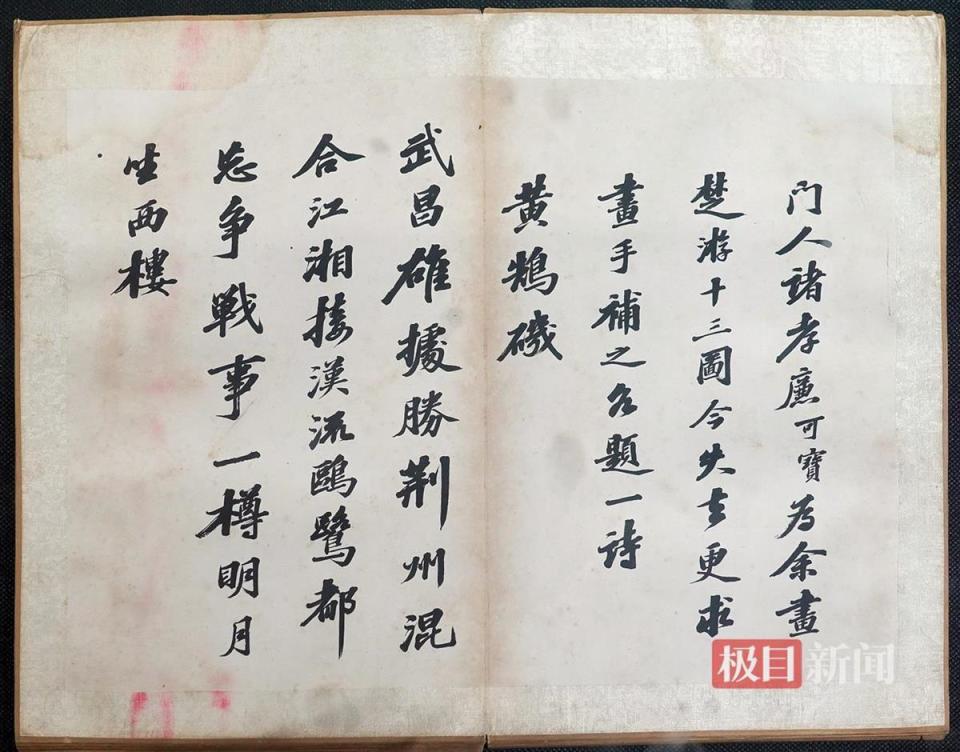 门人诸孝廉可寳为余畫
楚游十三圖今失去更求
畫手補之各題一诗
黄鵠磯
武昌雄據勝荆州混
合江湘接漢流鷗鷺都
忘争戰事一樽明月
坐西樓
极目新闻